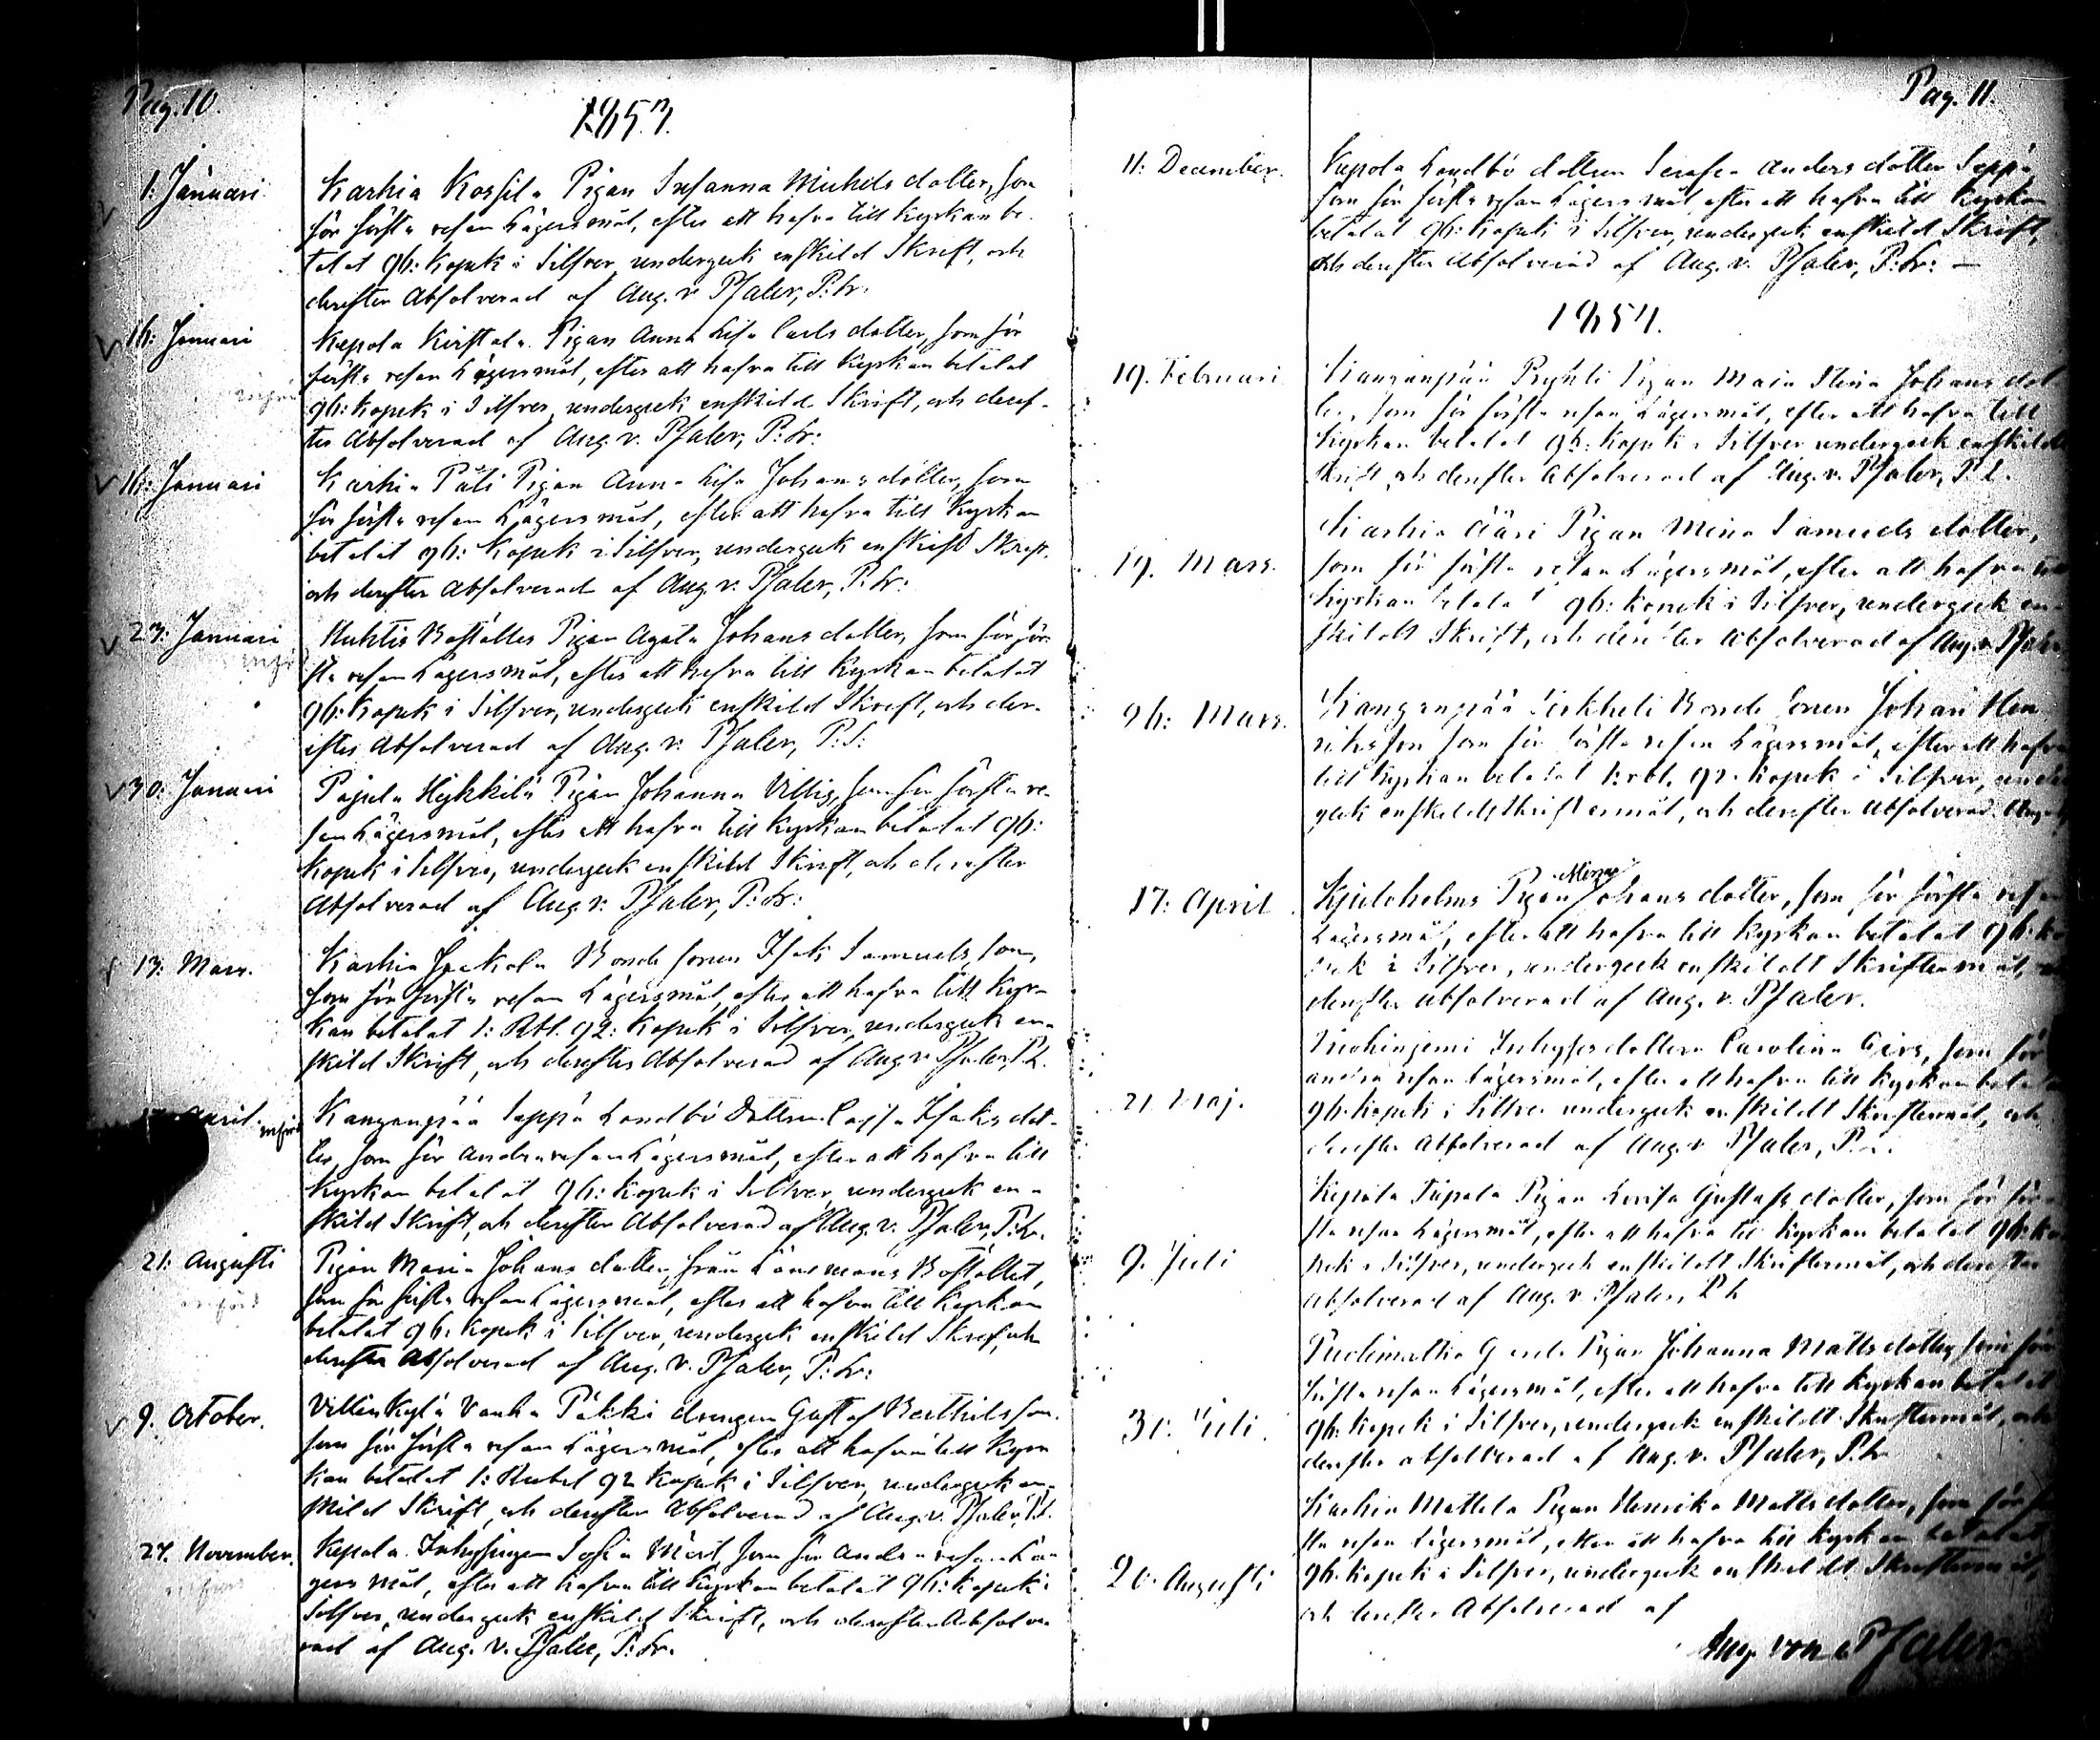 Pag. 10.
1853.
1: Januari
Karhia Kossila Pigan Susanna Michelsdotter, som
för första resan Lägersmål, efter att hafva till Kyrkan be-
talat 96: Kopek i Silfver, undergick enskild Skrift, och
derefter Absolverad af Aug. v. Pfaler, P: Lr:
16: Januari
Kepola Pigan Anna Lisa Carlsdotter, som för
första resan Lägersmål, efter att hafva till Kyrkan betalat
96: Kopek i Silfver, undergick enskild Skrift, och deref-
ter Absolverad af Aug. v. Pfaler, P: Lr:
16: Januari
Karhia Päti Pigan Anna Lisa Johansdotter, som
för första resan Lägersmål, efter att hafva till Kyrkan
betalat 96: Kopek i Silfver, undergick enskild Skrift,
och derefter Absolverad af Aug. v. Pfaler, P: Lr:
23: Januari
Huhtis Boställes Pigan Agata Johansdotter, som för för-
sta resan Lägersmål, efter att hafva till Kyrkan betalat
96: Kopek i Silfver, undergick enskild Skrift, och der-
efter Absolverad af Aug. v. Pfaler, P: L:
30: Januari
Pajula Hejkkilä Pigan Johanna Villig, som för första re-
san Lägersmål, efter att hafva till Kyrkan betalat 96:
Kopek i Silfver, undergick enskild Skrift, och derefter
Absolverad af Aug. v. Pfaler, P: Lr:
13: Mars.
Karhia Jaakola Bonde sonen Isak Samuelsson,
som för första resan Lägersmål, efter att hafva till Kyr-
kan betalat 1: Rbl. 92: Kopek i Silfver, undergick en-
skild Skrift, och derefter Absolverad af Aug. v. Pfaler, P. L.
April. införd
Kangenpää Seppä Landbo Dottren Cajsa Isaksdot-
ter, som för andra resan Lägersmål, efter att hafva till
Kyrkan betalat 96: Kopek i Silfver, undergick en-
skild Skrift, och derefter Absolverad af Aug. v. Pfaler, P: Lr.
21: Augusti
införd
Pigan Maria Johansdotter, från Länsmans Bostället,
som för första resan Lägersmål, efter att hafva till Kyrkan
betalat 96: Kopek i Silfver, undergick enskild Skrift, och
derefter Absolverad af Aug. v. Pfaler, P: Lr:
9. October.
Villinkylä Vanha Päkki drengen Gustaf Berthilsson,
som för första resan Lägersmål, efter att hafva till Kyr-
kan betalat 1: Rubel 92 Kopek i Silfver, undergick en-
skild Skrift, och derefter Absolverad af Aug. v. Pfaler, P. L.
27. November.
Kepola Inhysingen Sofia Mört, som för andra resan Lä-
gersmål, efter att hafva till Kyrkan betalat 96: Kopek i
Silfver, undergick enskild Skrift, och derefter Absolve-
rad af Aug. v. Pfaler, P: Lr.
Pag. 11.
11: December.
Kepola Landbo dottren Serafia Andersdotter Seppä
som för första resan Lägersmål, efter att hafva till Kyrkan
betalat 96: Kopek i Silfver, undergick enskild Skrift,
och derefter Absolverad af Aug. v. Pfaler, P: Lr: —
1854.
19. Februari
Kangenpää Pryhti Pigan Maja Stina Johansdot-
ter, som för första resan Lägersmål, efter att hafva till
Kyrkan betalat 96: Kopek i Silfver undergick enskildt
Skrift och derefter Absolverad af Aug. v. Pfaler, P. L.
19. Mars.
Karhia Ääri Pigan Mina Samuelsdotter,
som för första resan Lägersmål, efter att hafva till
Kyrkan betalat 96: Kopek i Silfver, undergick en-
skildt Skrift, och derefter Absolverad af Aug. v. Pfaler
26: Mars.
Kangenpää Bonde Sonen Johan Hen-
riksson som för första resan Lägersmål, efter att hafva
till Kyrkan betalat 1: rbl. 92. Kopek i Silfver, under-
gick enskildt Skriftermål, och derefter Absolverad. Aug.
17: April.
Kjuloholms Pigan Minna Johansdotter, som för första resan
Lägersmål, efter att hafva till Kyrkan betalat 96: Ko-
pek i Silfver, undergick enskildt Skriftermål,
derefter Absolverad af Aug. v. Pfaler.
21 Maj.
Inhysesdottern Carolina Girs, som för
andra resan Lägersmål, efter att hafva till Kyrkan betalat
96. Kopek i Silfver undergick enskildt Skriftermål, och
derefter Absolverad af Aug. v. Pfaler, P. L.
9. Juli
Kepola Pigan Lovisa Gustafsdotter, som för för-
sta resan Lägersmål, efter att hafva till Kyrkan betalat 96: Ko-
pek i Silfver, undergick enskildt Skriftermål, och derefter
Absolverad af Aug. v. Pfaler, P. L.
31. Juli.
Pigan Johanna Mattsdotter, som för
första resan Lägersmål, efter att hafva till Kyrkan betalat
96: Kopek i Silfver, undergick enskildt Skriftermål, och
derefter absolverad af Aug. v. Pfaler, P. Lr.
20. Augusti
Karhia Mattela Pigan Henrika Mattsdotter, som för för-
sta resan Lägersmål, efter att hafva till Kyrkan betalat
96. Kopek i Silfver, undergick enskildt Skriftermål,
och derefter Absolverad af
Aug. von Pfaler.